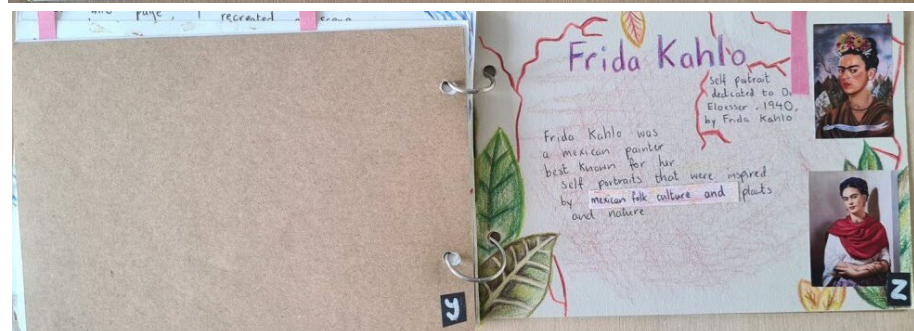 page, I recreated
y
Frida Kahlo
Self patrait
dedicated to Dr
Eloesser, 1940,
by Frida Kahlo
Frida Kahlo was
a mexican painter
best known for her
self portraits that were inspired
by mexican folk culture and plants
and nature
Z